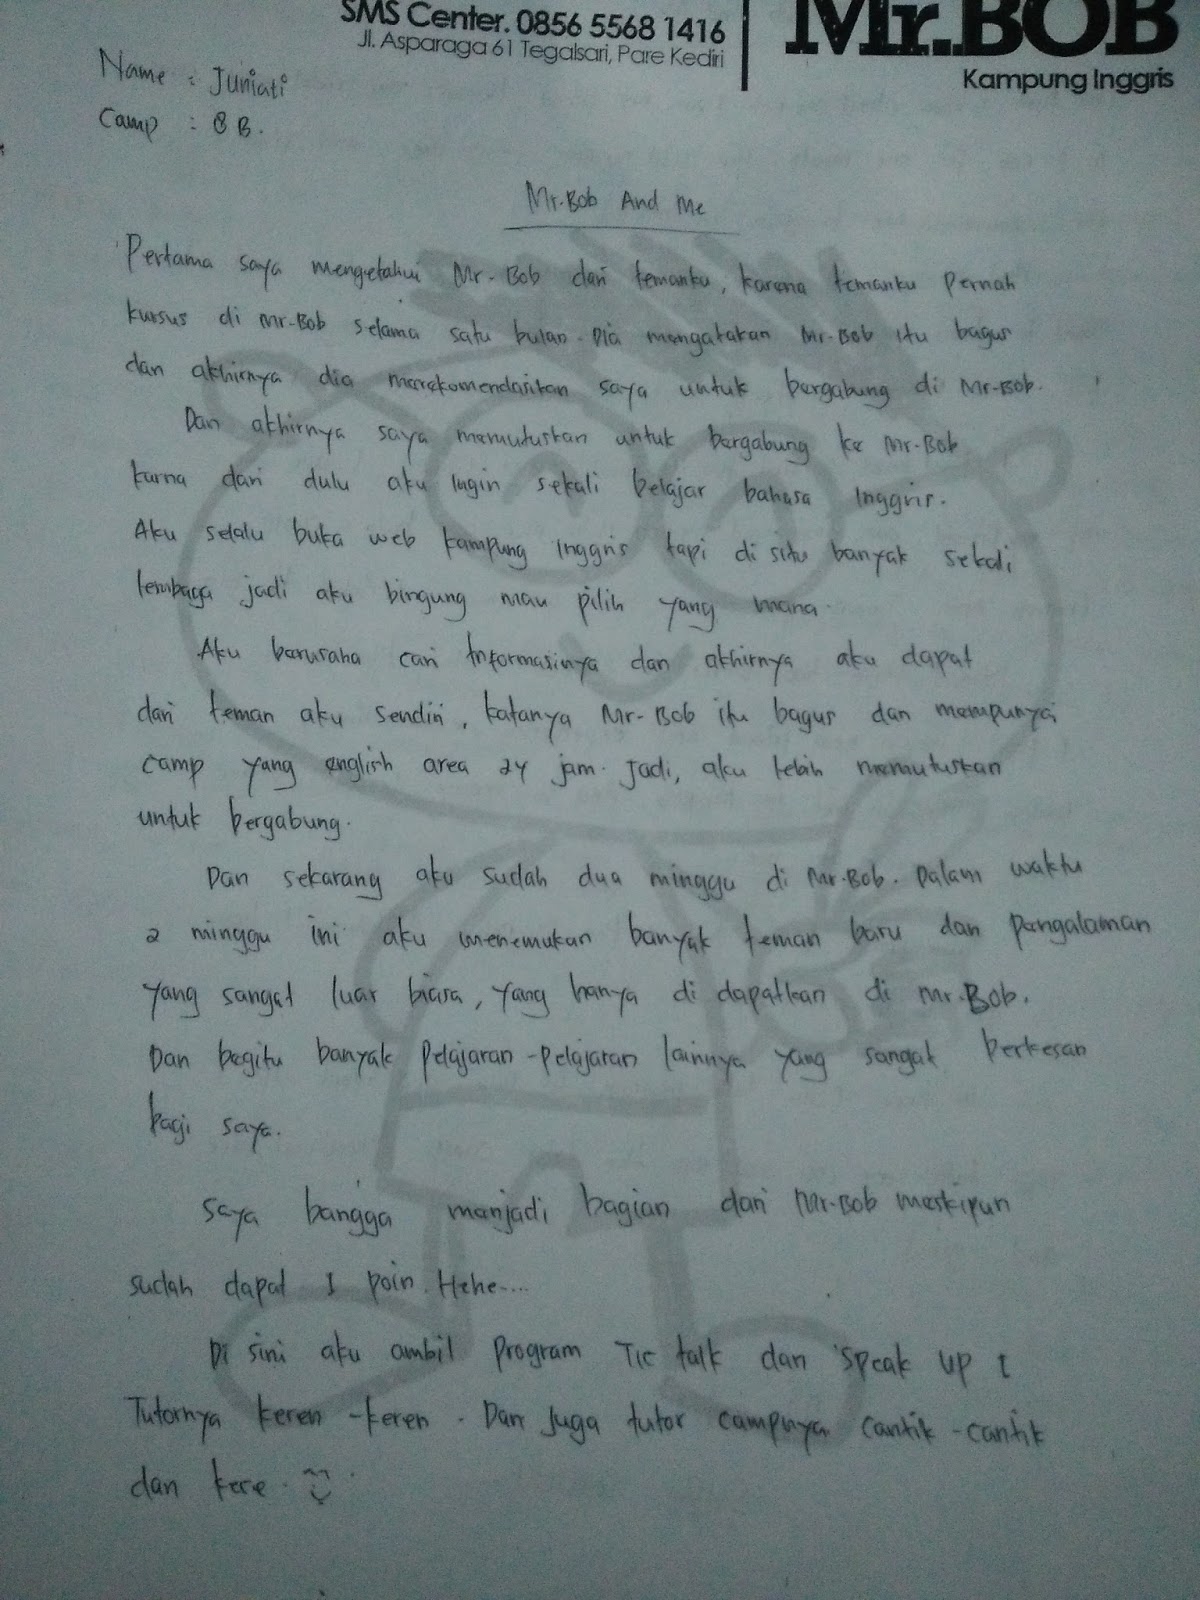 SMS Center. 0856 5568 1416
Jl. Asparaga 61 Tegalsari, Pare Kediri
Mr.BOB
Kampung Inggris
Name : Juniati
Camp : 8 B.
Mr.Bob And Me
Pertama saya mengetahui Mr-Bob dari temanku, karena temanku pernah
kursus di Mr-Bob selama satu bulan. Dia mengatakan Mr-Bob itu bagus
dan akhirnya dia merekomendasikan saya untuk bergabung di Mr-Bob.
Dan akhirnya saya memutuskan untuk bergabung ke Mr-Bob
karna dari dulu aku ingin sekali belajar bahasa Inggris.
Aku selalu buka web kampung Inggris tapi di situ banyak sekali
lembaga jadi aku bingung mau pilih yang mana.
Aku berusaha cari Informasinya dan akhirnya aku dapat
dari teman aku sendiri, katanya Mr-Bob itu bagus dan mempunyai
camp yang english area 24 jam. Jadi, aku lebih memutuskan
untuk bergabung.
Dan sekarang aku sudah dua minggu di Mr.Bob. Dalam waktu
2 minggu ini aku menemukan banyak teman baru dan pengalaman
yang sangat luar biasa, yang hanya di dapatkan di Mr.Bob.
Dan begitu banyak pelajaran-pelajaran lainnya yang sangat berkesan
bagi saya.
Saya bangga menjadi bagian dari Mr-Bob meskipun
sudah dapat 1 poin. Hehe....
Di sini aku ambil program Tic talk dan Speak up 1
Tutornya keren-keren. Dan Juga tutor campnya cantik-cantik
dan kece.